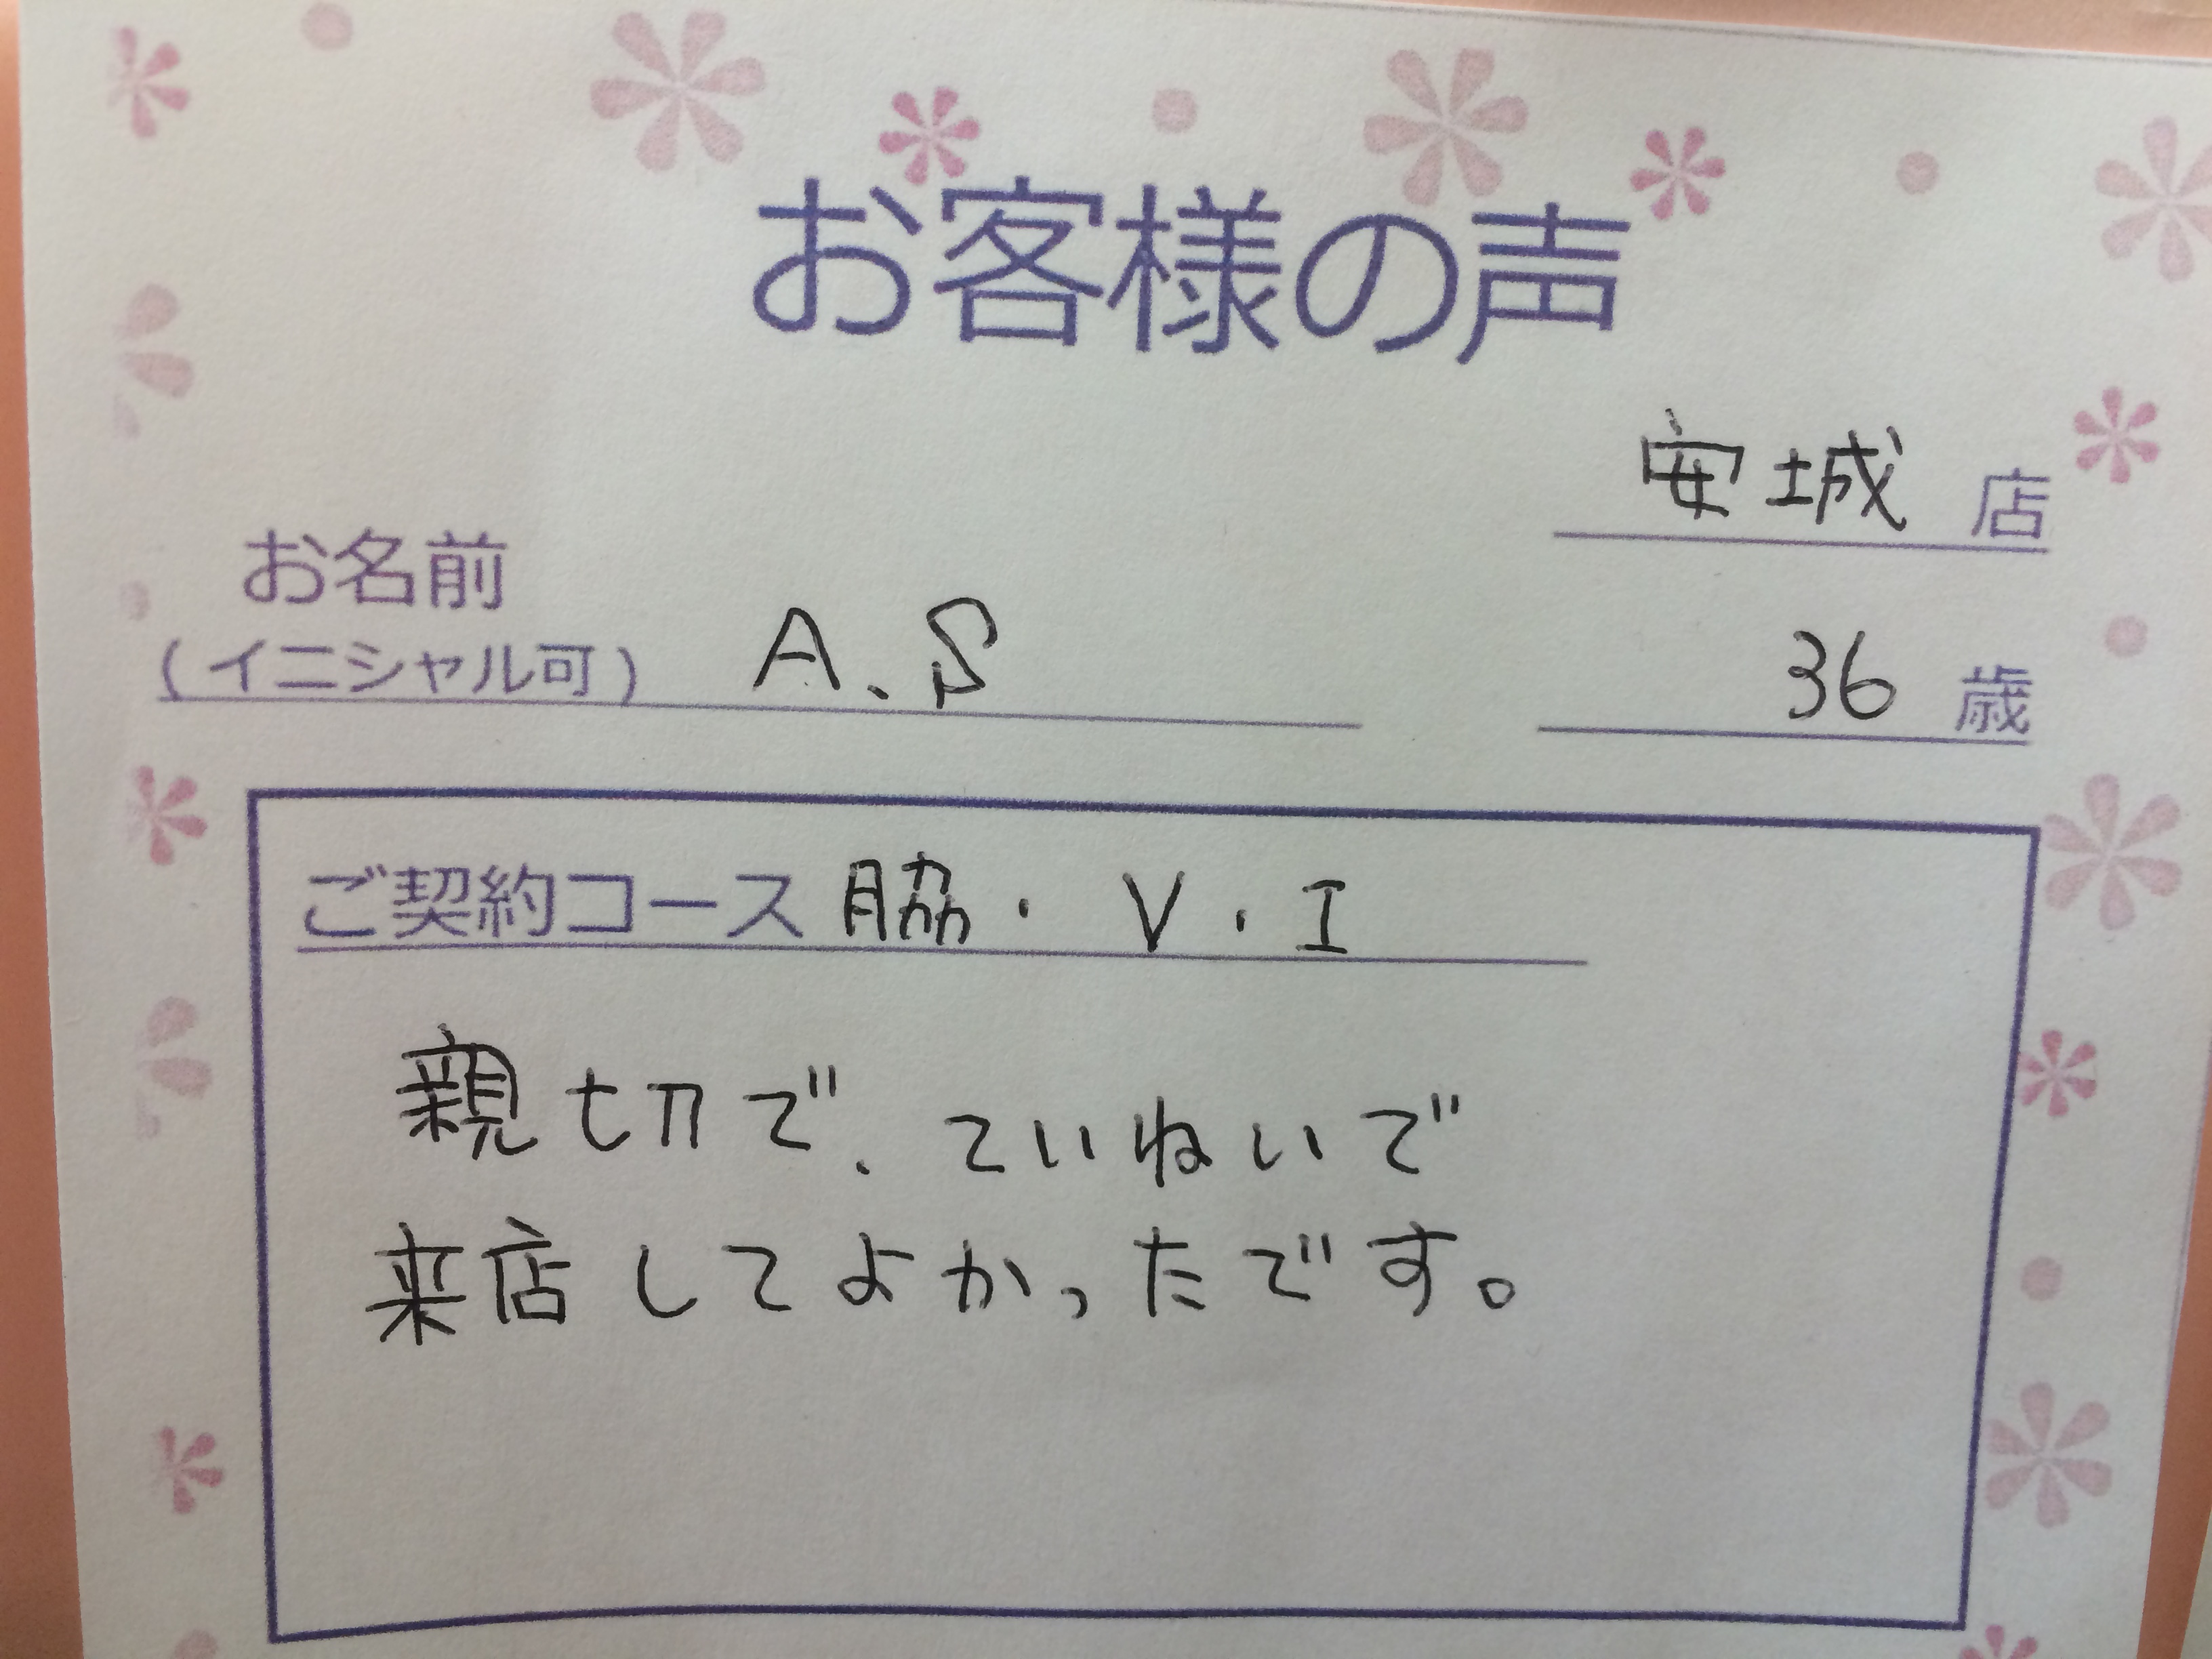 お客様の声
安城 店
お名前
(イニシャル可) A.S 36 歳
ご契約コース 脇・V・I
親切で、ていねいで
来店してよかったです。